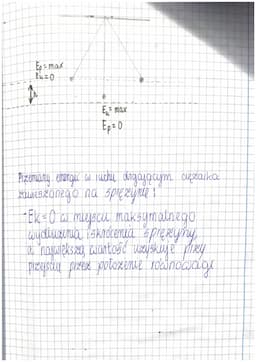 Ep = max
Ek = 0
h
Ek = max
Ep = 0
Przemiany energii w ruchu drgającym ciężarka
zawieszonego na sprężynie:
- Ek = 0 w miejscu maksymalnego
wydłużenia i skrócenia sprężyny,
a największą wartość uzyskuje przy
przejściu przez położenie równowagi